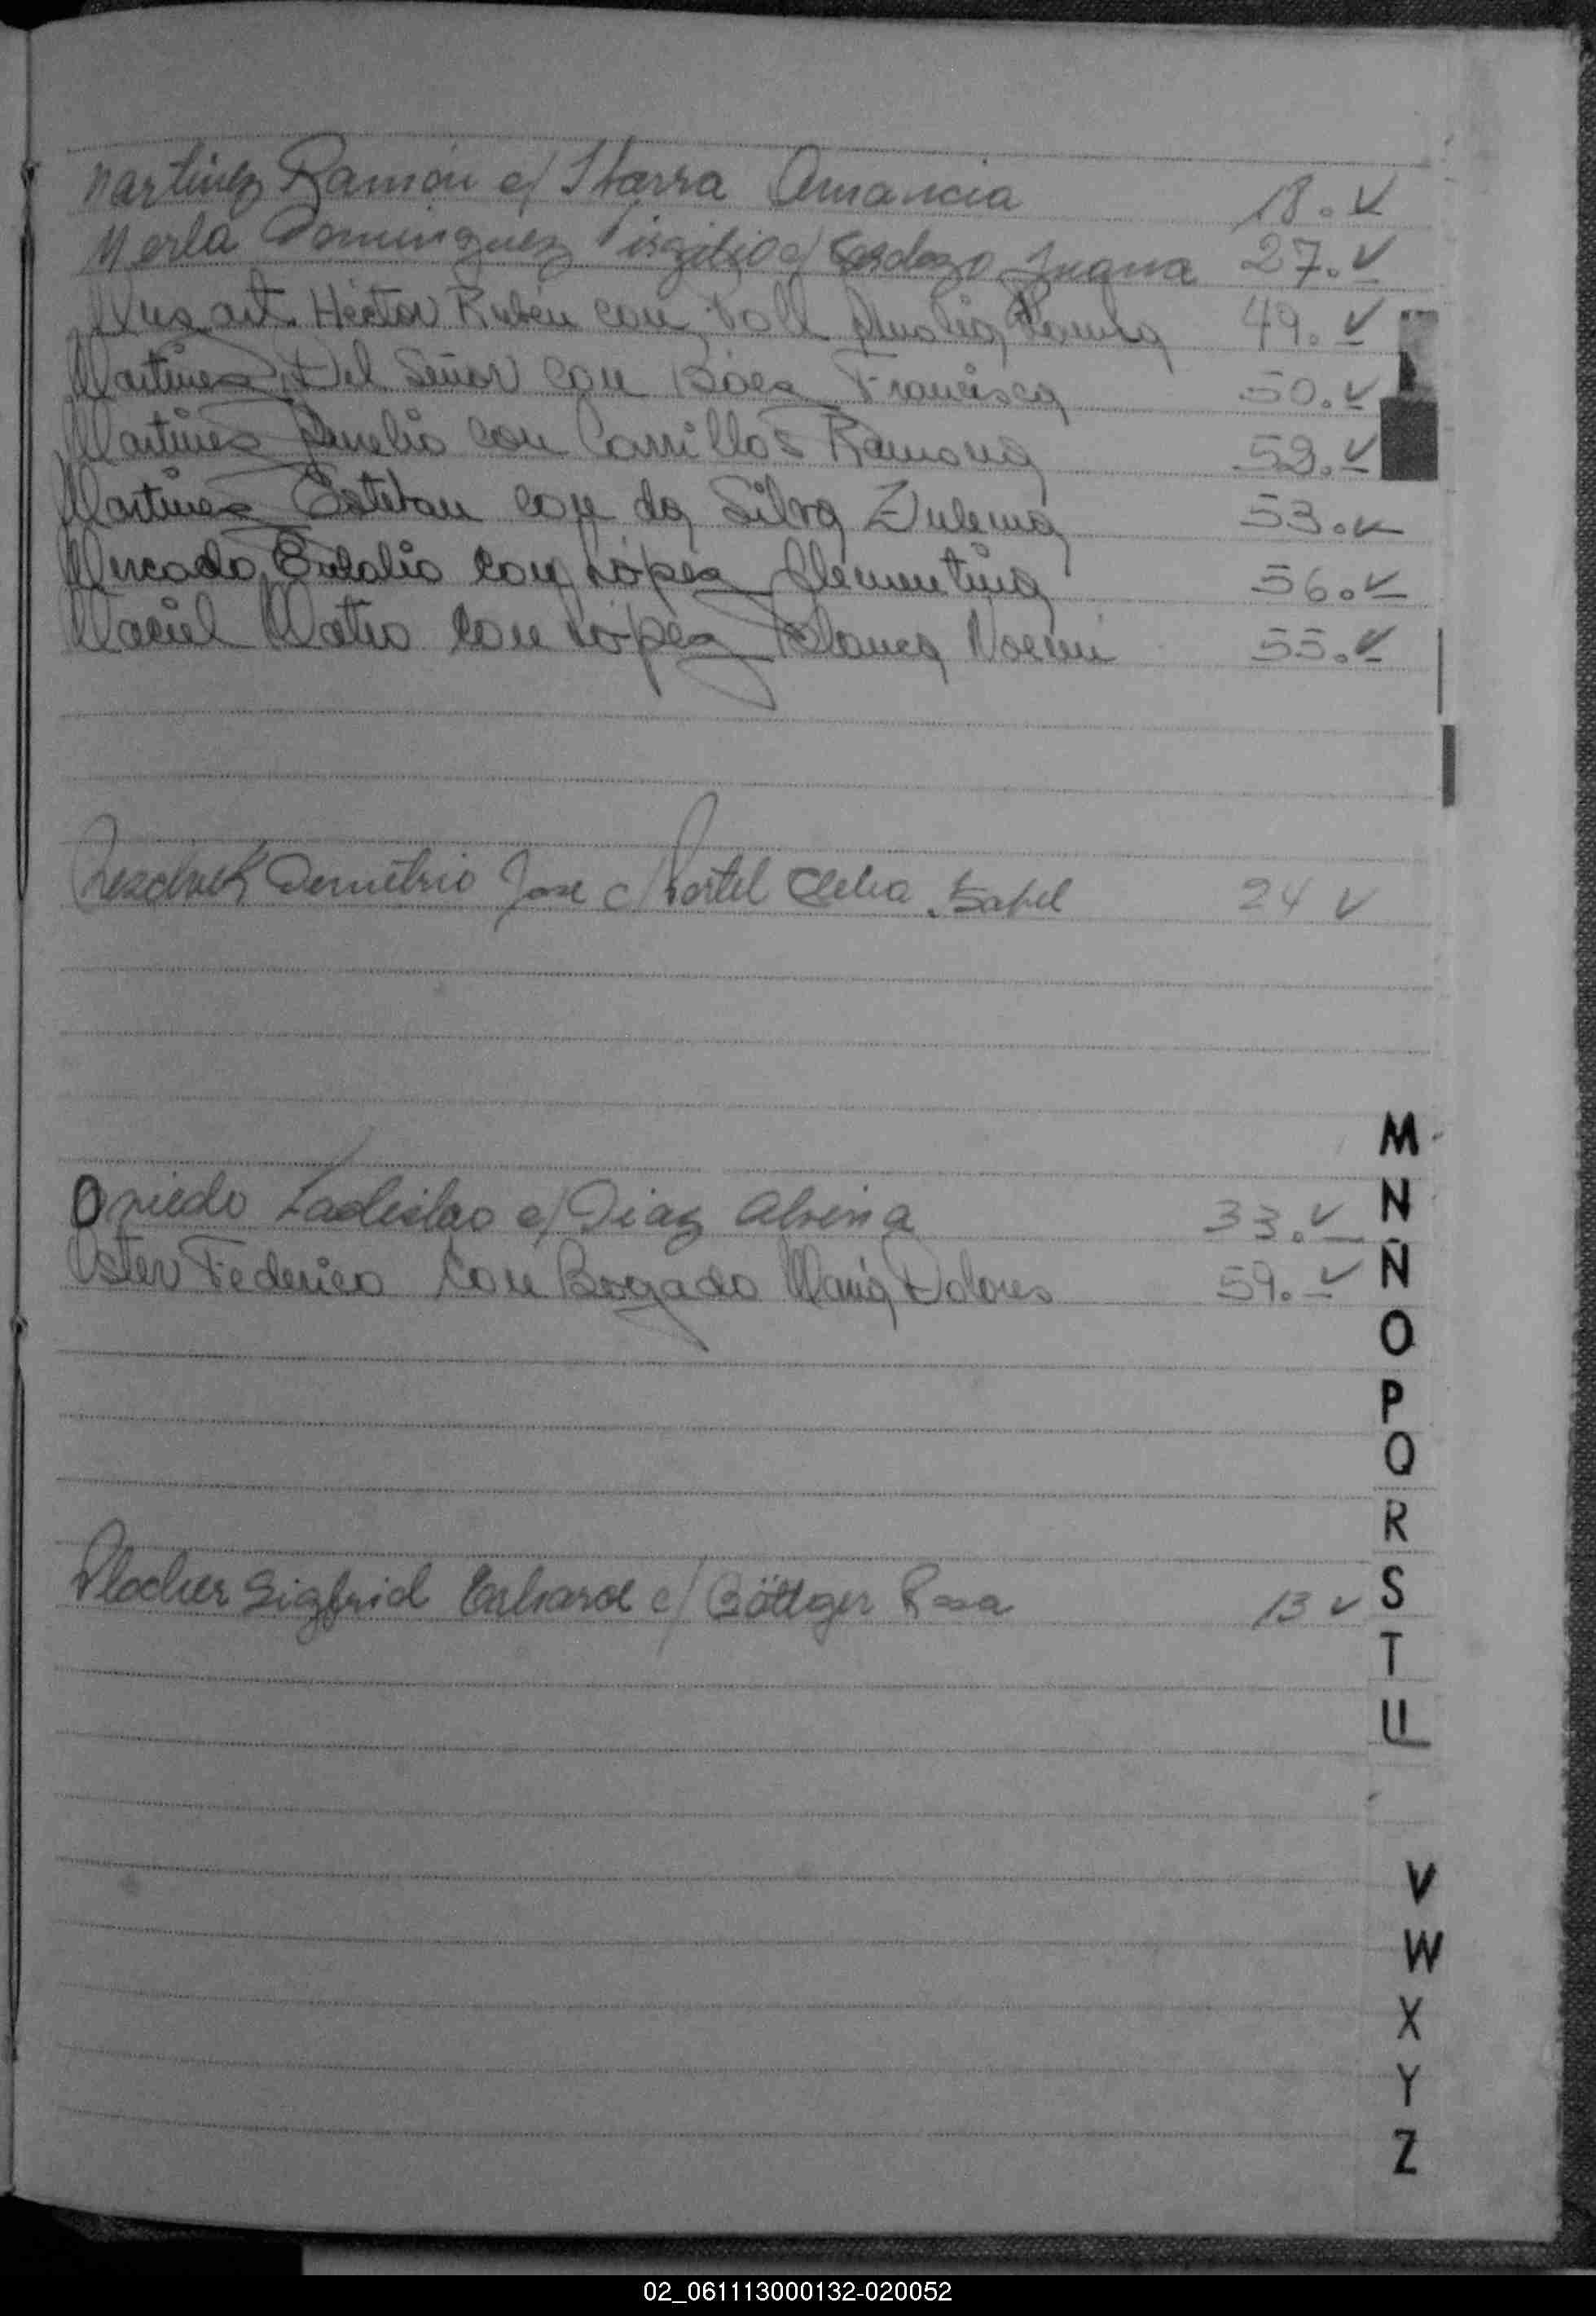 Martinez Ramón c/ Ibarra Amancia 18. V
Merla Dominguez Virgilio c/ Cardozo Juana 27. V
Héctor Rubén con Noll Ramona 49. V
Martinez Del Señor con Báez Francisca 50. V
Martinez Aurelio con Carrillos Ramona 52. V
Martinez Esteban con da Silva Zulema 53. V
Mercado Eulalio con López Clementina 56. V
Maciel Mateo con López Blanca Noemi 55. V
Demetrio Jose c/ Clelia Isabel 24 V
Oviedo Ladislao c/ Diaz Alvina 33. V
Oster Federico con Bogado Maria Dolores 59. V
Plocher Sigfrid Erhard c/ Böttger Rosa 13 V
M
N
Ñ
O
P
Q
R
S
T
U
V
W
X
Y
Z
02_061113000132-020052